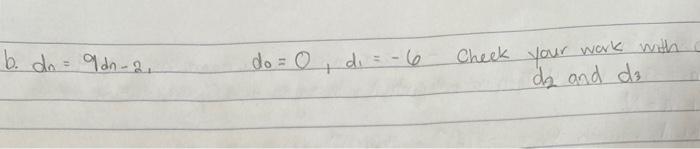 b. dn = 9dn-2, d0 = 0, d1 = -6 Check your work with
d2 and d3